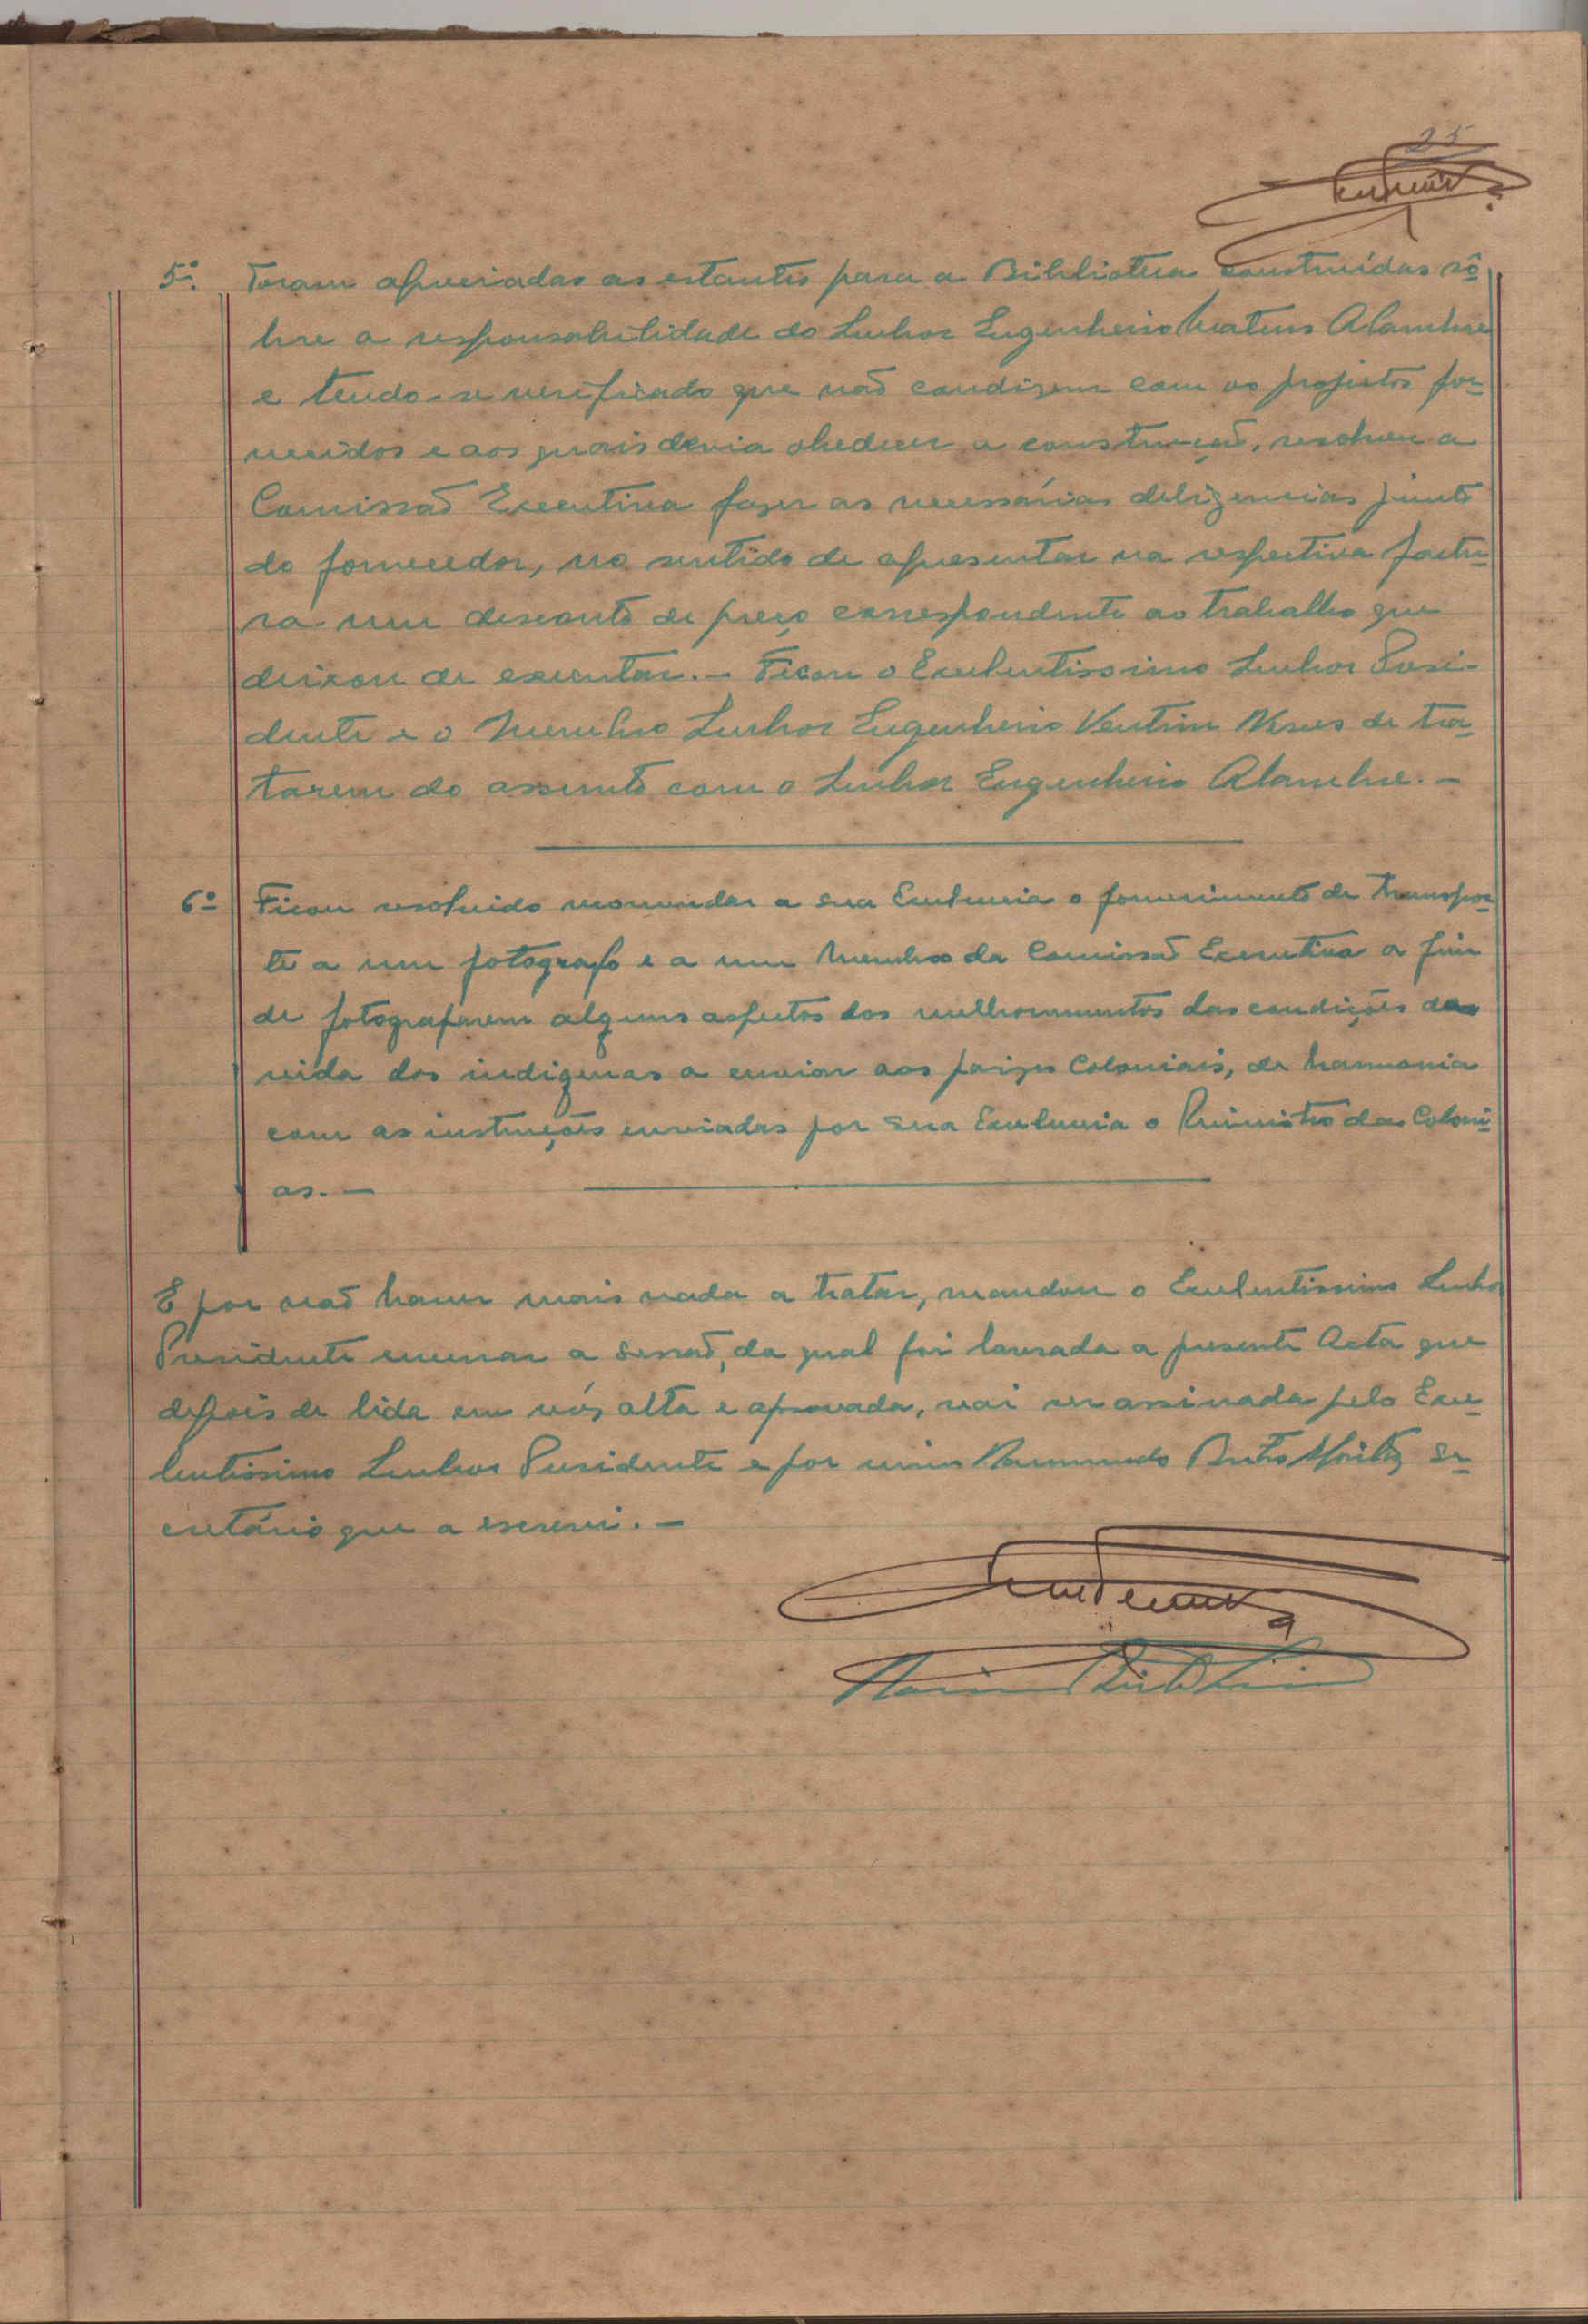 25
5º. Foram apreciadas as estantes para a Bibliotéca construídas sô-
bre a responsabilidade do Senhor Engenheiro Mateus Alambre
e tendo-se verificado que não condizem com os projectos for-
necidos e aos quais devia obedecer a construção, resolveu a
Comissão Executiva fazer as necessárias deligencias junto
do fornecedor, no sentido de apresentar na respectiva factu-
ra um desconto de preço correspondente ao trabalho que
deixou de executar.- Ficou o Excelentissimo Senhor Presi-
dente e o Membro Senhor Engenheiro Ventim Neves de tra-
tarem do assunto com o Senhor Engenheiro Alambre.-
6º Ficou resolvido recomendar a sua Excelencia o fornecimento de transpor-
te a um fotografo e a um Membro da Comissão Executiva a fim
de fotografarem alguns aspectos dos melhoramentos das condições da
vida dos indigenas a enviar aos paizes Coloniais, de harmonia
com as instruções enviadas por sua Excelencia o Ministro das Coloni-
as.-
E por não haver mais nada a tratar, mandou o Excelentissimo Senhor
Presidente encerrar a sessão, da qual foi lavrada a presente Acta que
depois de lida em vós alta e aprovada, vai ser assinada pelo Exce-
lentissimo Senhor Presidente e por mim se-
cretário que a escrevi.-